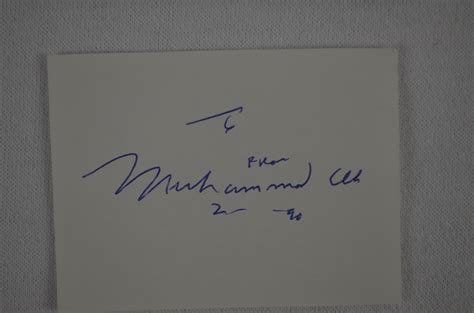 To
From
Muhammad Ali
2- -90